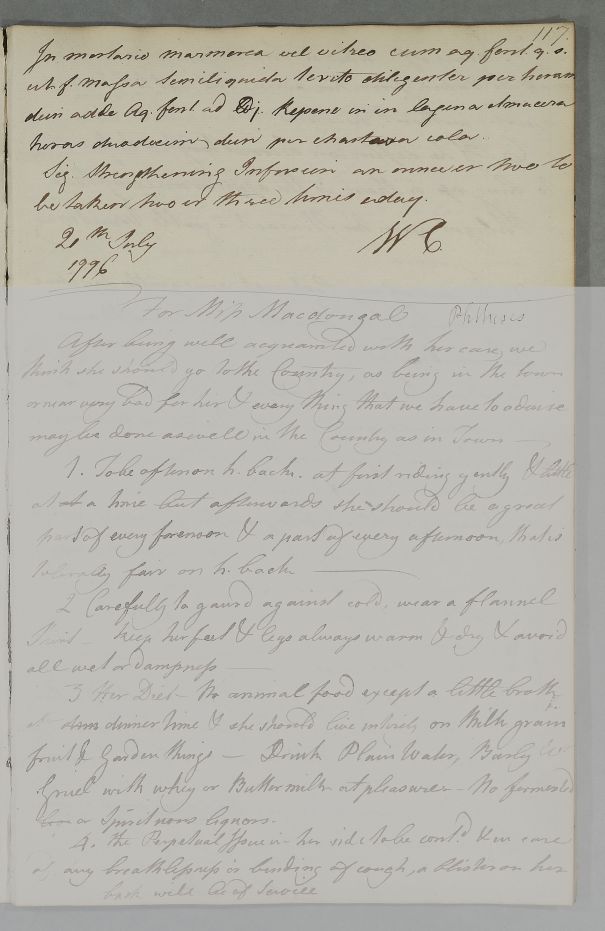 117.
In mortario marmorea vel vitreo cum aq. font. q. s.
ut f. massa semiliquida terito diligenter per horam
dein adde Aq. font. ad ℔j. Repone in in lagena et macera
horas duodecim, dein per chartam cola.
Sig. Strengthening Infusion an ounce or two to
be taken two or three times a day.
21th July
1796
W C
For Miss Macdougal Phthisis
After being well acquainted with her case, we
think she should go to the Country, as being in the town
or near very bad for her & every thing that we have to advise
may be done as well in the Country as in Town —
1. To be often on h. back. at first riding gently & little
at a time but afterwards she should be a great
part of every forenoon & a part of every afternoon, that is
tolerably fair on h. back —
2 Carefully to gaurd against cold, wear a flannel
Shirt — keep her feet & legs always warm & dry & avoid
all wet or dampness —
3 Her Diet — No animal food except a little broth
at dinner time & she should live intirely on Milk grain
fruit & Garden things — Drink Plain Water, Barley
Gruel with whey or Buttermilk at pleasure — No fermented
or Spirituous liquors.
4. the Perpetual Issue in her side to be contd. & in case
of any breathlessness or binding of cough, a blister on her
back will be of Service